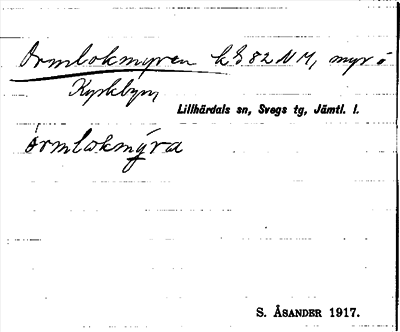 Ormlokmyren k З 82 NM, myr ö
Kyrkbyn
Lillhärdals sn, Svegs tg, Jämtl. l.
òrmlokmýra
S. ÅSANDER 1917.